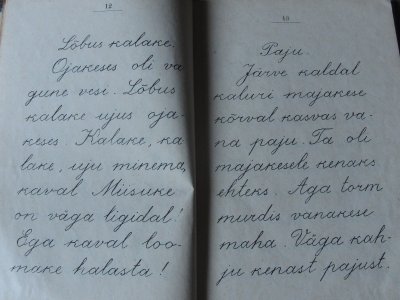 12
Lõbus kalake.
Ojakeses oli va-
gune vesi. Lõbus
kalake ujus oja-
keses. Kalake, ka-
lake, uju minema,
kaval Miisuke
on väga ligidal!
Ega kaval loo-
make halasta!
13
Paju.
Järve kaldal
kaluri majakese
kõrval kasvas va-
na paju. Ta oli
majakesele kenaks
ehteks. Aga torm
murdis vanakese
maha. Väga kah-
ju kenast pajust.